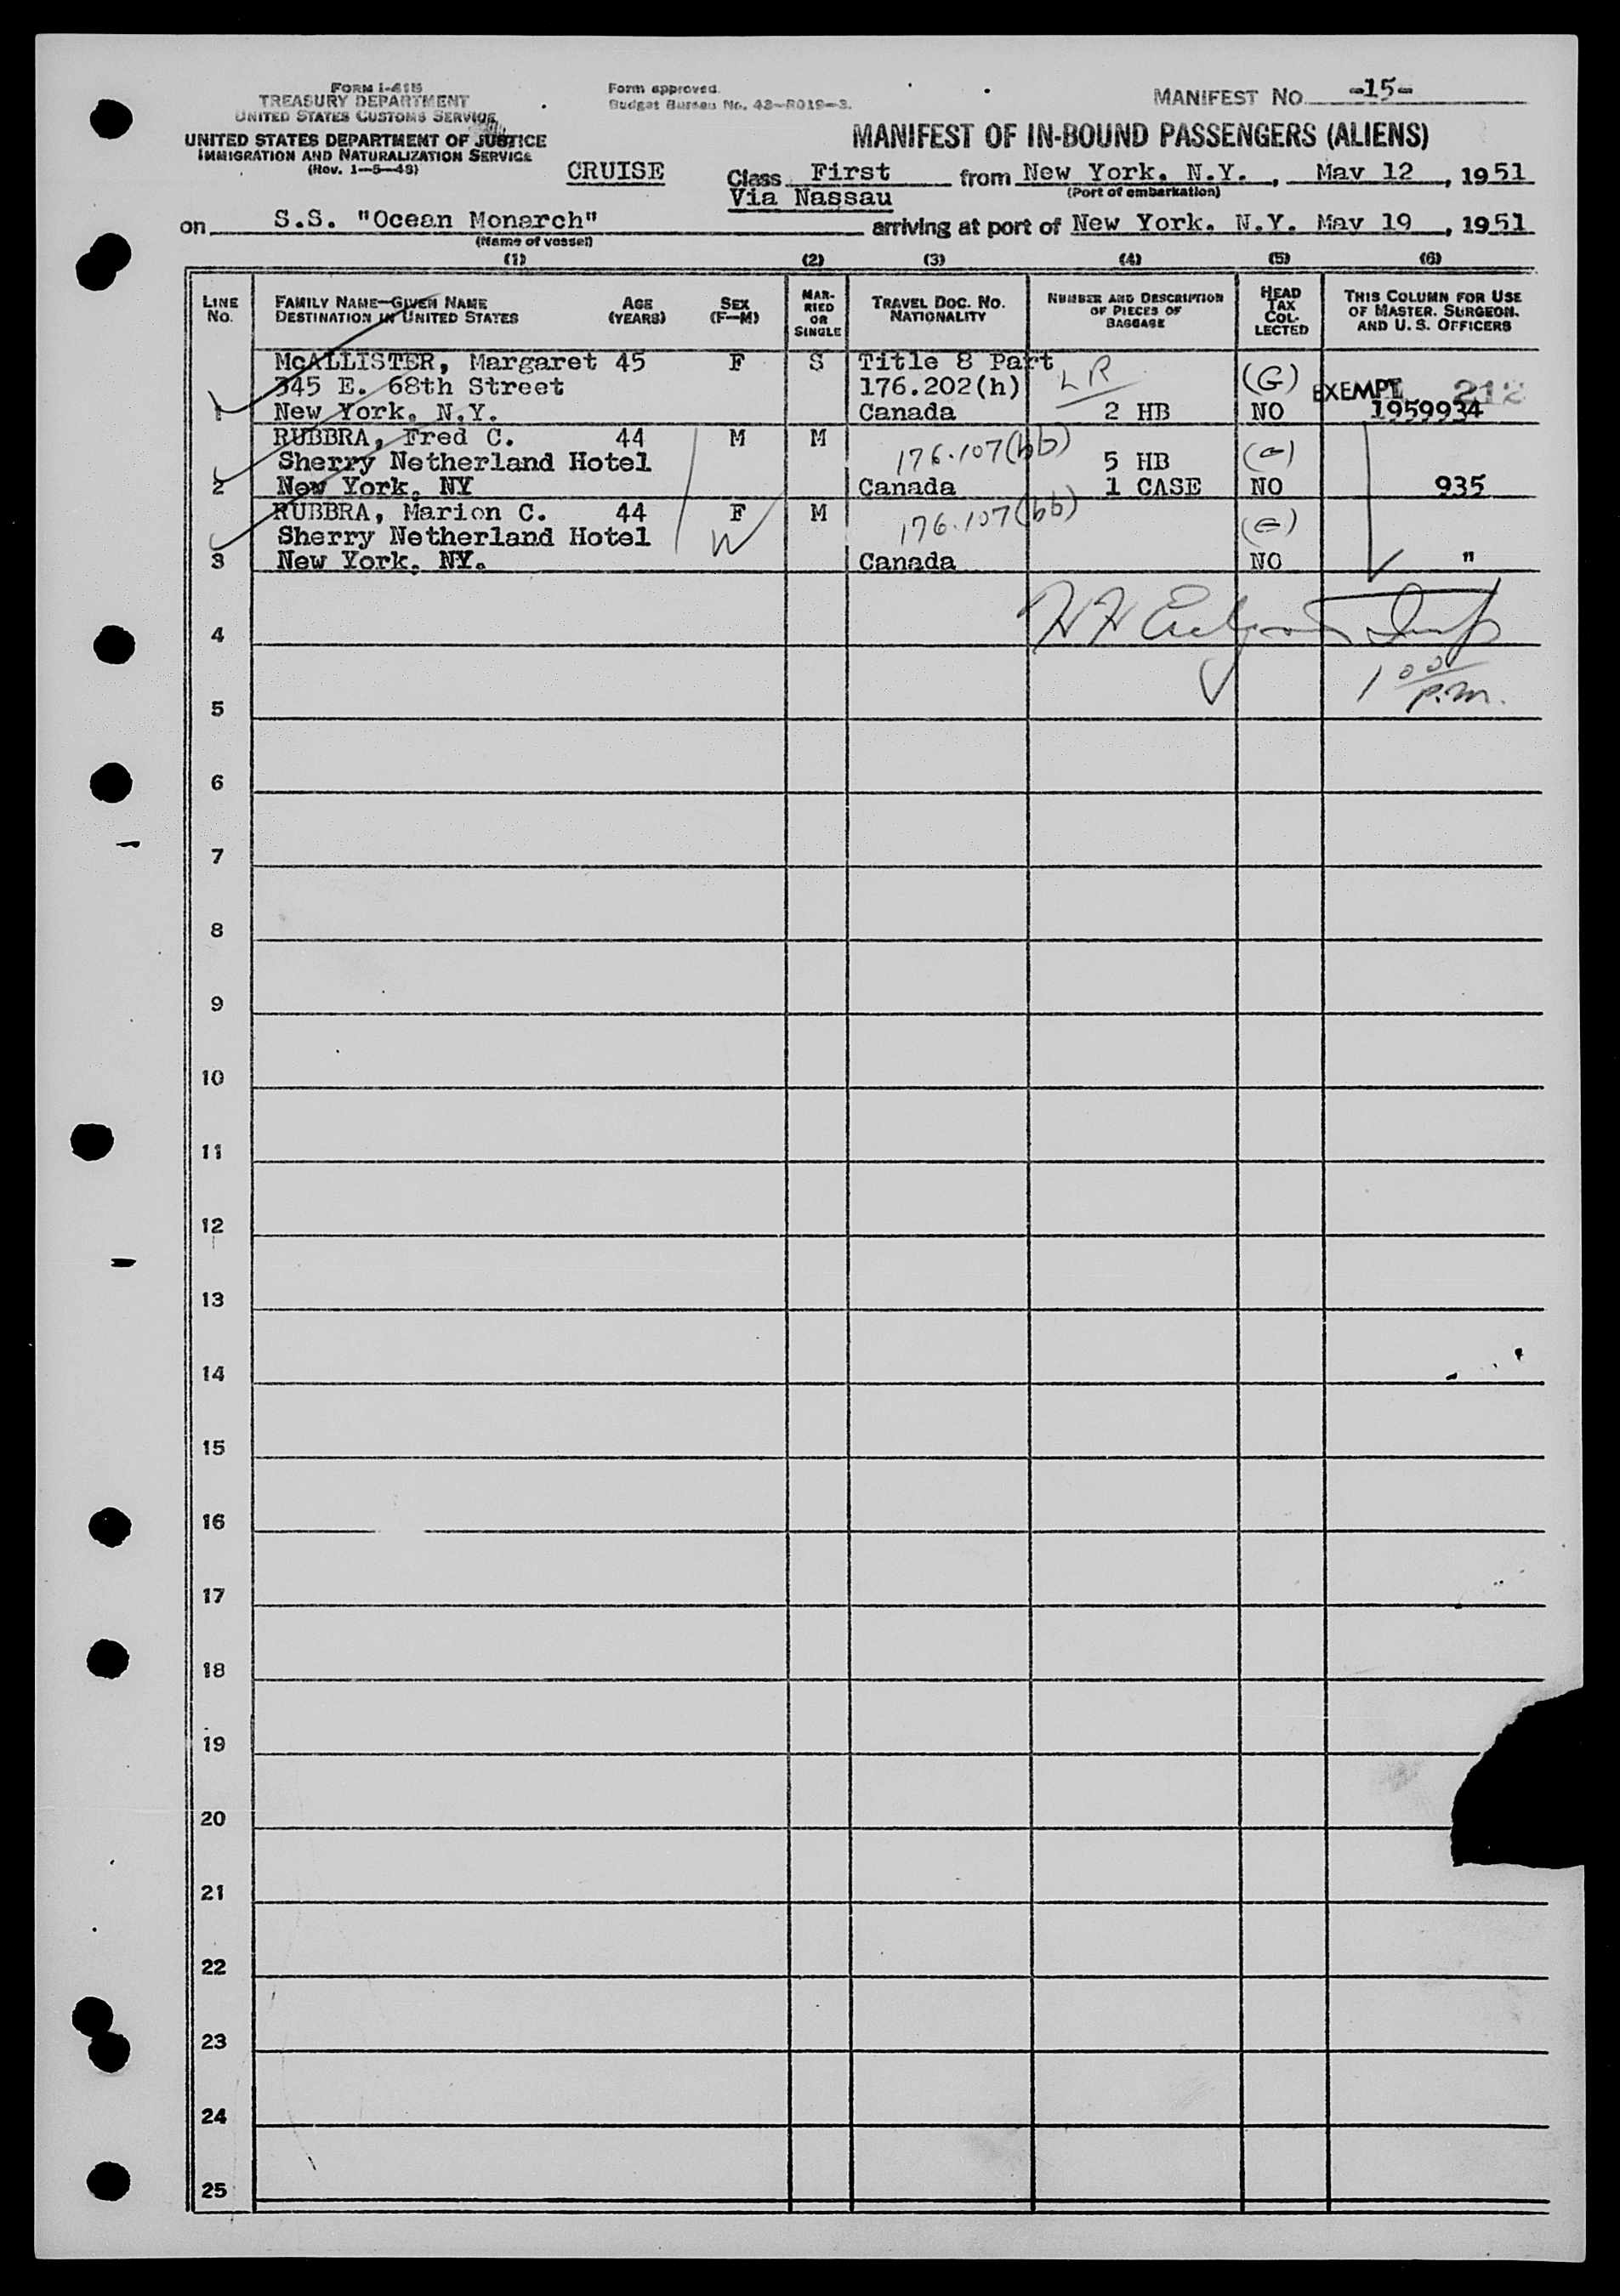 FORM I-415
TREASURY DEPARTMENT
UNITED STATES CUSTOMS SERVICE
UNITED STATES DEPARTMENT OF JUSTICE
IMMIGRATION AND NATURALIZATION SERVICE
(Rev. 1-5-48)
Form approved.
Budget Bureau No. 43-R019-3.
MANIFEST NO. -15-
MANIFEST OF IN-BOUND PASSENGERS (ALIENS)
CRUISE Class First from New York, N.Y., May 12, 1951
Via Nassau (Port of embarkation)
on S.S. "Ocean Monarch" arriving at port of New York, N.Y. May 19, 1951
(Name of vessel)
(1) (2) (3) (4) (5) (6)
LINE NO. FAMILY NAME—GIVEN NAME DESTINATION IN UNITED STATES AGE (YEARS) SEX (F—M) MARRIED OR SINGLE TRAVEL DOC. NO. NATIONALITY NUMBER AND DESCRIPTION OF PIECES OF BAGGAGE HEAD TAX COLLECTED THIS COLUMN FOR USE OF MASTER, SURGEON, AND U. S. OFFICERS
McALLISTER, Margaret 45 F S Title 8 Part LR
345 E. 68th Street 176.202(h) (G) EXEMPT 212
1 New York, N.Y. Canada 2 HB NO 1959934
RUBBRA, Fred C. 44 M M 176.107(bb)
Sherry Netherland Hotel 5 HB
2 New York, NY Canada 1 CASE NO 935
RUBBRA, Marion C. 44 F M 176.107(bb)
Sherry Netherland Hotel W
3 New York, NY. Canada NO "
4
1 00 P.m.
5
6
7
8
9
10
11
12
13
14
15
16
17
18
19
20
21
22
23
24
25